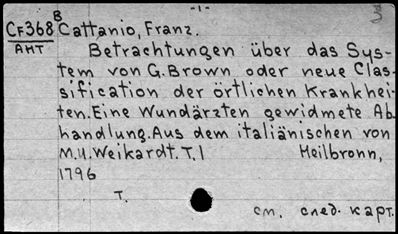 -1-
B
CF368 Cattanio, Franz.
AMT Betrachtungen über das Sys-
tem von G. Brown oder neue Clas-
sification der örtlichen Krankhei-
ten. Eine Wundärzten gewidmete Ab
handlung. Aus dem italiänischen von
M.U. Weikardt. T. I Heilbronn,
1796
T.
см. след. карт.